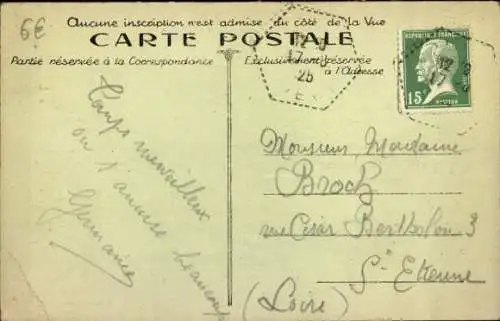 6€
Aucune inscription n'est admise du côté de la Vue
CARTE POSTALE
Partie réservée à la Correspondance
Exclusivement réservée
à l'Adresse
12
17
25
REPUBLIQUE FRANÇAISE
15c
POSTES
Temps merveilleux
on s'amuse beaucoup
Germaine
Monsieur Madame
Broch
rue César Bertholon 3
St Etienne
(Loire)